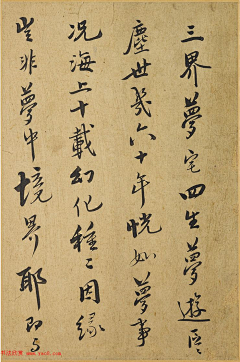 三界夢宅四生夢遊區區
塵世幾六十年恍如夢事
况海上十載幻化種種因緣
豈非夢中境界耶即与